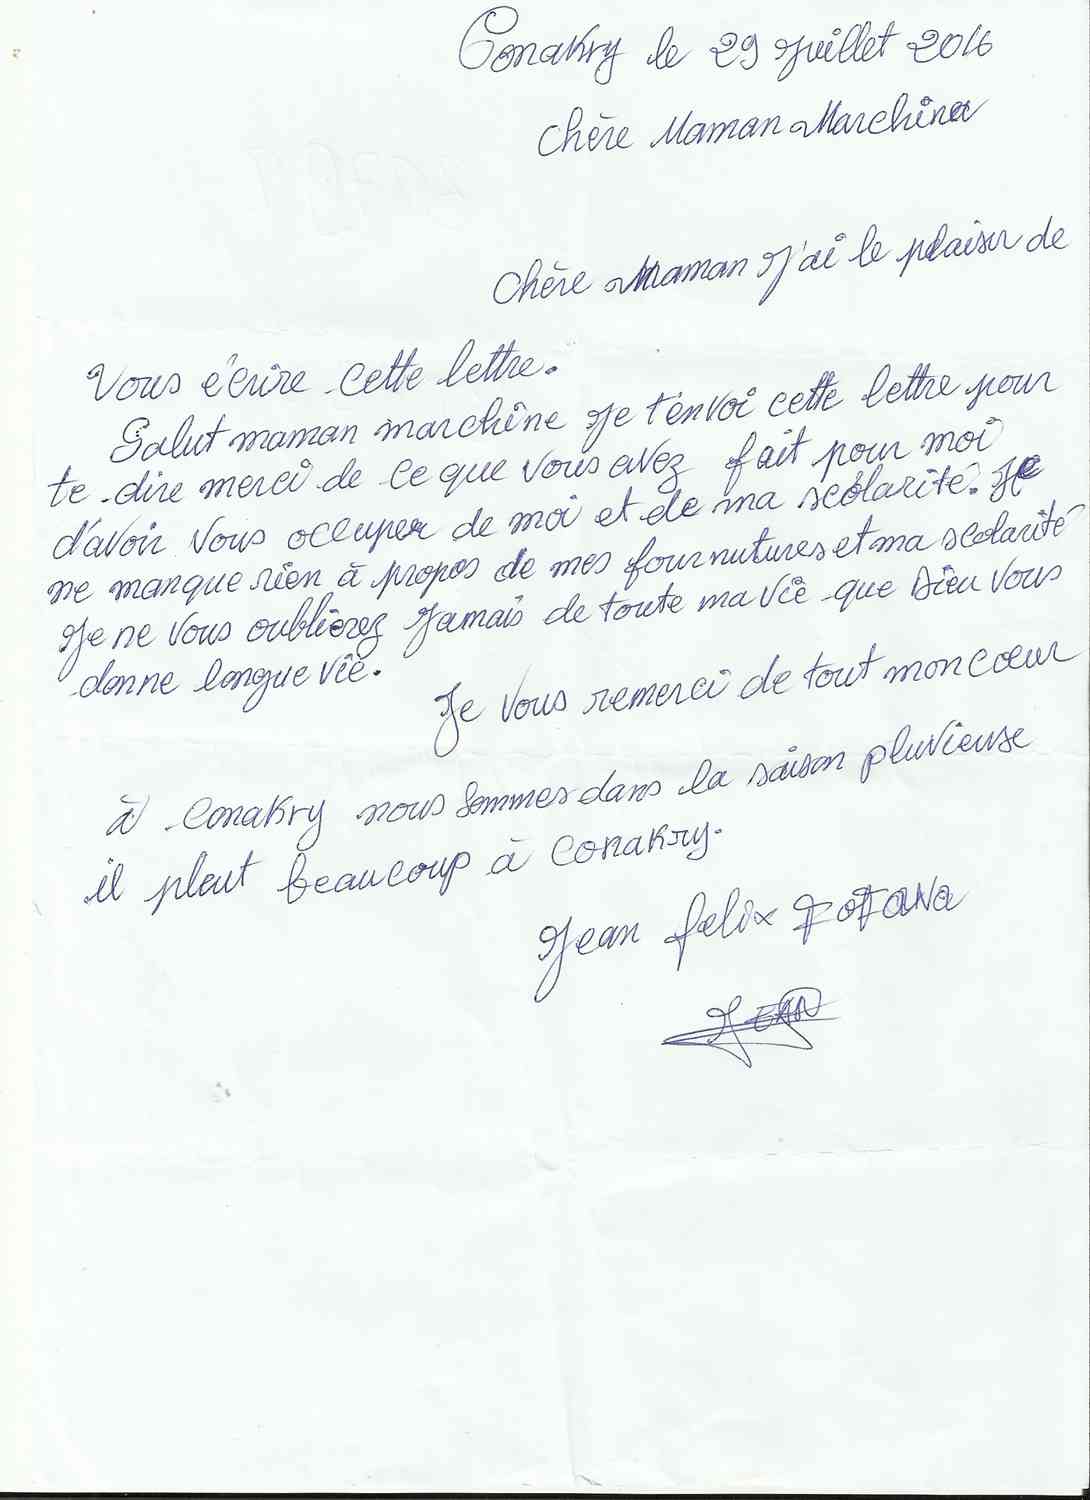 Conakry le 29 Juillet 2016
Chère Maman Marchina
Chère Maman J'ai le plaisir de
Vous écrire cette lettre.
Salut maman marchine Je t'envoi cette lettre pour
te dire merci de ce que vous avez fait pour moi
d'avoir vous occuper de moi et de ma scolarité. Je
ne manque rien à propos de mes fournutures et ma scolarité
Je ne vous oublierez Jamais de toute ma vie que Dieu vous
donne longue vie.
Je vous remerci de tout mon coeur
à Conakry nous sommes dans la saison pluvieuse
il pleut beaucoup à Conakry.
Jean felix FOFANA
JEAN